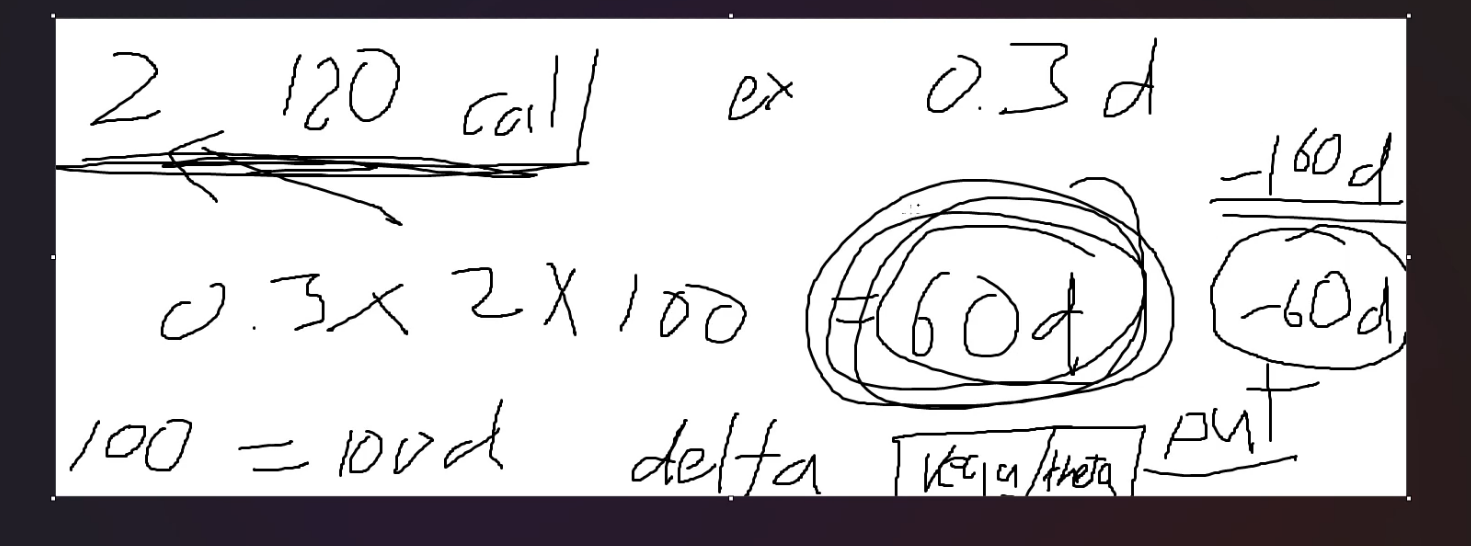 2 120 call ex 0.3 d
-160d
0.3 x 2 x 100 = 60 d
-60d
100 = 100d delta vega/theta put